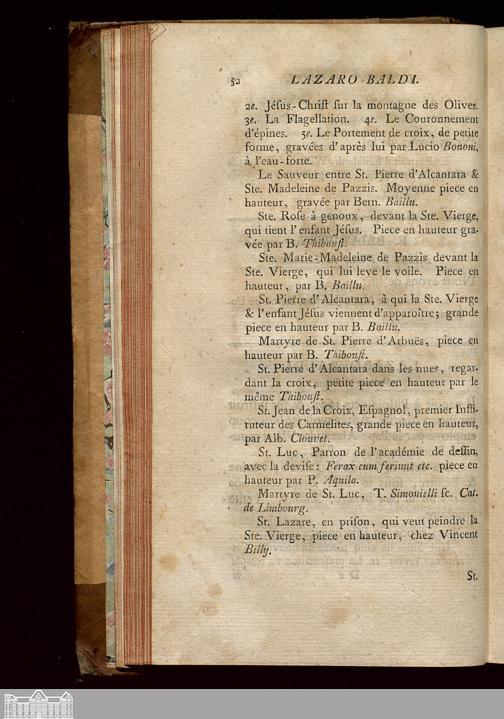 52 LAZARO BALDI.
2e. Jéſus-Chriſt ſur la montagne des Olives.
3e. La Flagellation. 4e. Le Couronnement
d'épines. 5e. Le Portement de croix, de petite
forme, gravées d'après lui par Lucio Bononi,
à l'eau-forte.
Le Sauveur entre St. Pierre d'Alcantara &
Ste. Madeleine de Pazzis. Moyenne piece en
hauteur, gravée par Bern. Baillu.
Ste. Roſe à genoux, devant la Ste. Vierge,
qui tient l'enfant Jéſus. Piece en hauteur gra-
vée par B. Thibouſt.
Ste. Marie-Madeleine de Pazzis devant la
Ste. Vierge, qui lui leve le voile. Piece en
hauteur, par B. Baillu.
St. Pierre d'Alcantara, à qui la Ste. Vierge
& l'enfant Jéſus viennent d'apparoître; grande
piece en hauteur par B. Baillu.
Martyre de St. Pierre d'Arbuës, piece en
hauteur par B. Thibouſt.
St. Pierre d'Alcantara dans les nues, regar-
dant la croix, petite piece en hauteur par le
même Thibouſt.
St. Jean de la Croix, Eſpagnol, premier Inſti-
tuteur des Carmelites, grande piece en hauteur,
par Alb. Clouvet.
St. Luc, Patron de l'académie de deſſin,
avec la deviſe: Ferax cum feriunt etc. piece en
hauteur par P. Aquila.
Martyre de St. Luc, T. Simonielli ſc. Cat.
de Limbourg.
St. Lazare, en priſon, qui veut peindre la
Ste. Vierge, piece en hauteur, chez Vincent
Billy.
St.